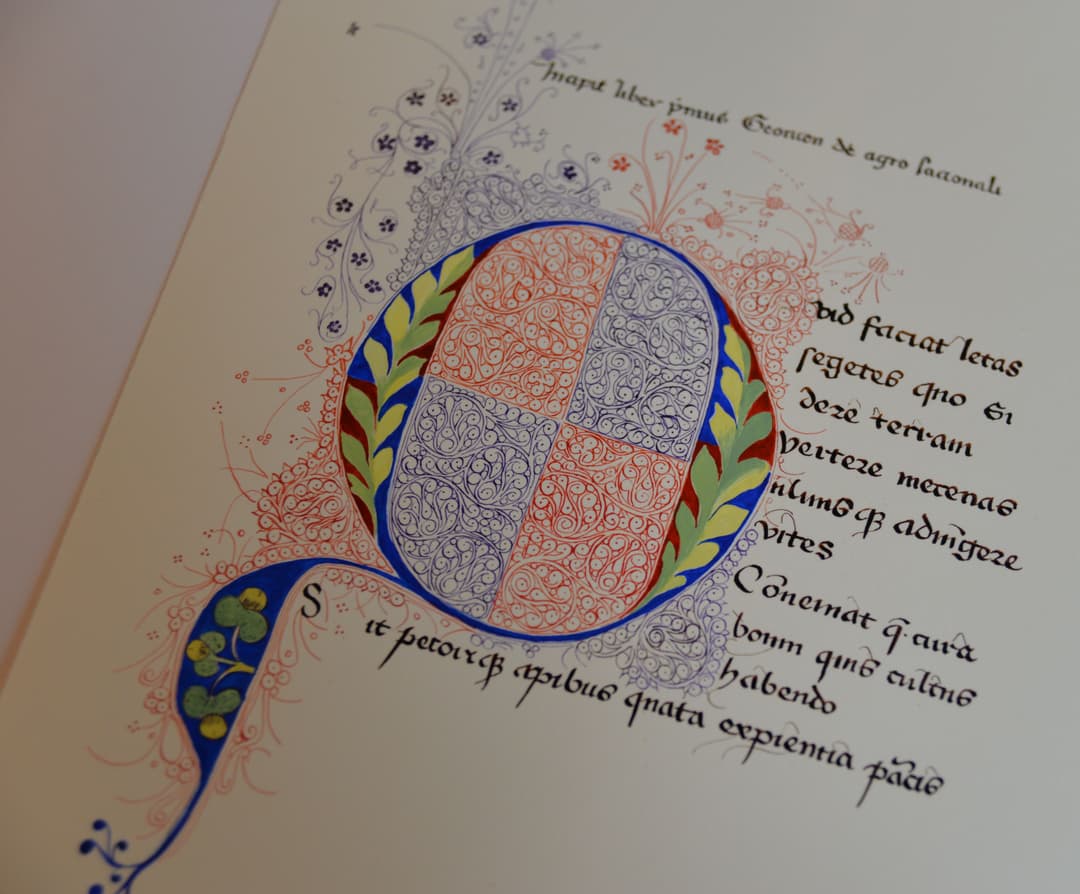 Incipit liber p̄mus Georicon de agro facionali
Q
vid faciat letas
segetes quo si
deze terram
vertere mecenas
ulmusqꝫ adiu̅gere
vites
Co̅nemat q̄ cura
boum quis cultus
habendo
Sit pecoriqꝫ apibus quata expientia p̄acis